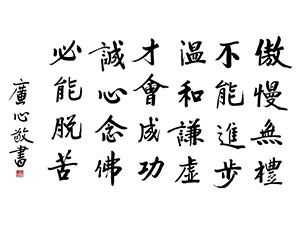 傲慢無禮
不能進步
溫和謙虛
才會成功
誠心念佛
必能脫苦
廣心敬書